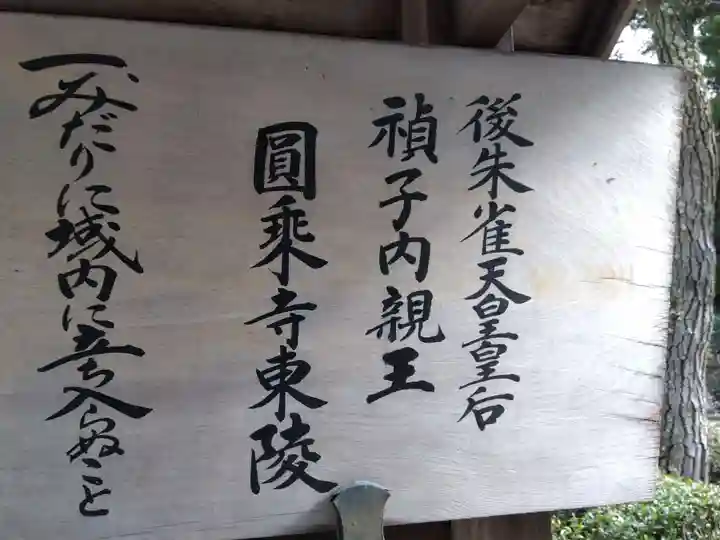 後朱雀天皇皇后
禎子内親王
圓乘寺東陵
一、みだりに域内に立ち入らぬこと